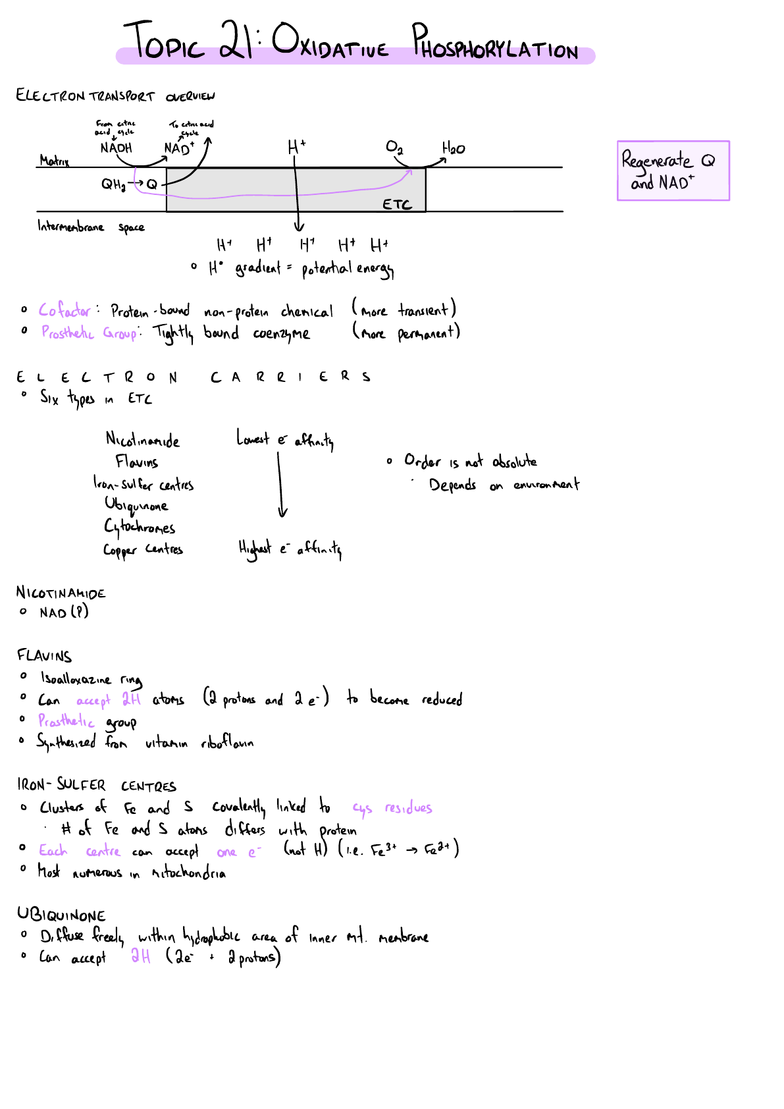 TOPIC 21: OXIDATIVE PHOSPHORYLATION
ELECTRON TRANSPORT OVERVIEW
From citric acid cycle
To citric acid cycle
NADH NAD⁺ H⁺ O₂ H₂O
Matrix
QH₂ → Q
ETC
Intermembrane space
Regenerate Q
and NAD⁺
H⁺ H⁺ H⁺ H⁺ H⁺
∘ H⁺ gradient = potential energy
∘ Cofactor: Protein-bound non-protein chemical (more transient)
∘ Prosthetic Group: Tightly bound coenzyme (more permanent)
ELECTRON CARRIERS
∘ Six types in ETC
Nicotinamide Lowest e⁻ affinity
Flavins
Iron-sulfer centres
Ubiquinone
Cytochromes
Copper centres Highest e⁻ affinity
∘ Order is not absolute
· Depends on environment
NICOTINAMIDE
∘ NAD(P)
FLAVINS
∘ Isoalloxazine ring
∘ Can accept 2H atoms (2 protons and 2 e⁻) to become reduced
∘ Prosthetic group
∘ Synthesized from vitamin riboflavin
IRON-SULFER CENTRES
∘ Clusters of Fe and S covalently linked to cys residues
· # of Fe and S atoms differs with protein
∘ Each centre can accept one e⁻ (not H) (i.e. Fe³⁺ → Fe²⁺)
∘ Most numerous in mitochondria
UBIQUINONE
∘ Diffuse freely within hydrophobic area of inner mt. membrane
∘ Can accept 2H (2e⁻ + 2 protons)